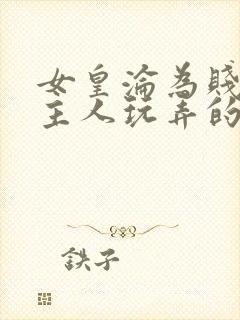 女皇淪為賤
主人玩弄的
鉄子